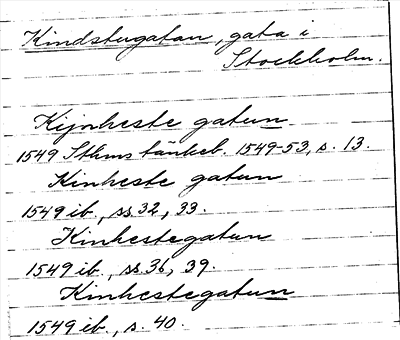 Kindstugatan, gata i
Stockholm.
Kijnheste gatun
1549 Sthms tänkeb. 1549-53, s. 13.
Kinheste gatun
1549 ib., ss. 32, 33.
Kinhestegatun
1549 ib., ss. 36, 39.
Kinhestegatun
1549 ib., s. 40.